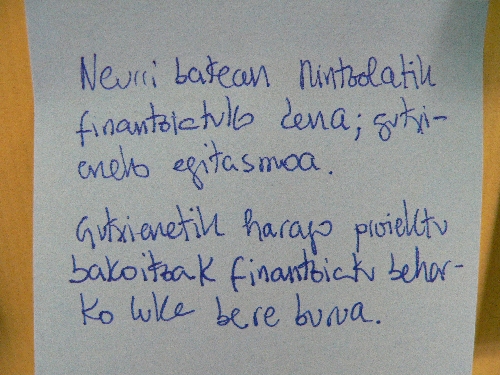 Neurri batean Mintzolatik
finantziatuko dena; gutxi-
eneko egitasmoa.
Gutxienetik harago proiektu
bakoitzak finantziatu behar-
ko luke bere burua.